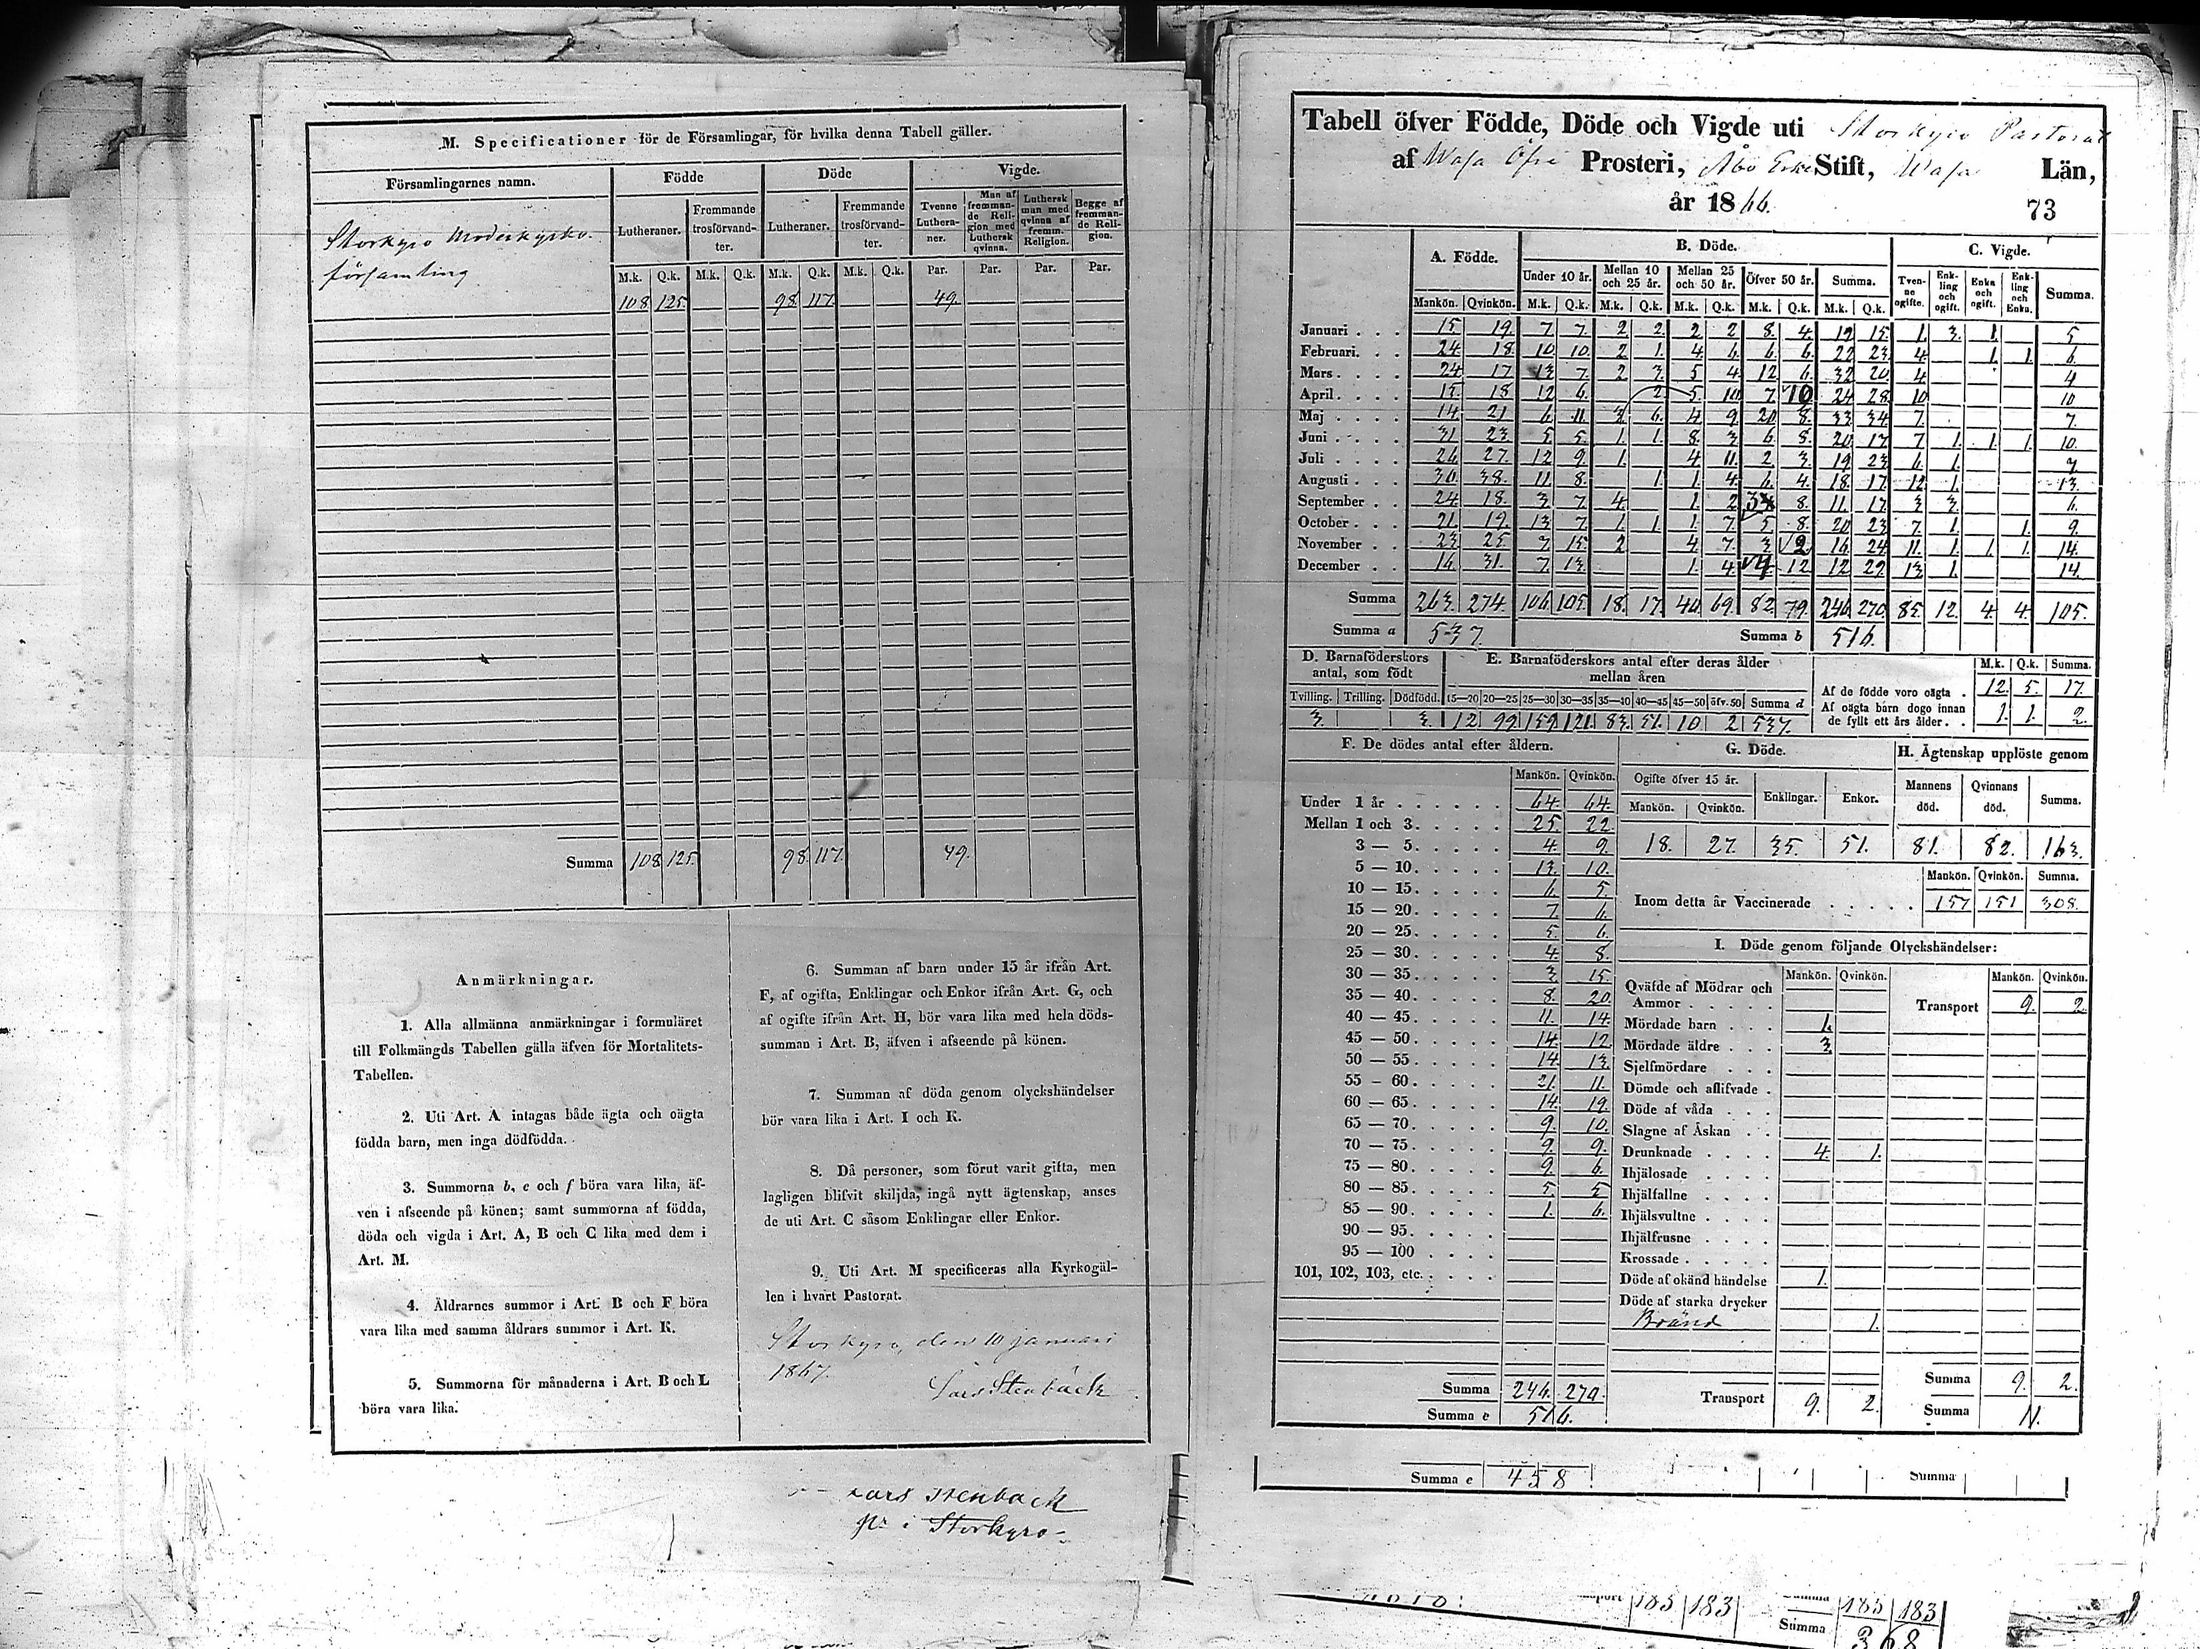 M. Specificationer för de Församlingar, för hvilka denna Tabell gäller.
Församlingarnes namn. Födde Döde Vigde.
Lutheraner. Fremmande trosförvandter. Lutheraner. Fremmande trosförvandter. Tvenne Lutheraner. Man af fremmande Religion med Luthersk qvinna. Luthersk man med qvinna af fremm. Religion. Begge af fremmande Religion.
M.k. Q.k. M.k. Q.k. M.k. Q.k. M.k. Q.k. Par. Par. Par. Par.
Storkyro Moderkyrko-
församling
108 125 98 117 49
Summa 108 125 98 117 49
Anmärkningar.
1. Alla allmänna anmärkningar i formuläret
till Folkmängds Tabellen gälla äfven för Mortalitets-
Tabellen.
2. Uti Art. A intagas både ägta och oägta
födda barn, men inga dödfödda.
3. Summorna b, e och f böra vara lika, äf-
ven i afseende på könen; samt summorna af födda,
döda och vigda i Art. A, B och C lika med dem i
Art. M.
4. Äldrarnes summor i Art. B och F böra
vara lika med samma åldrars summor i Art. K.
5. Summorna för månaderna i Art. B och L
böra vara lika.
6. Summan af barn under 15 år ifrån Art.
F, af ogifta, Enklingar och Enkor ifrån Art. G, och
af ogifte ifrån Art. H, bör vara lika med hela döds-
summan i Art. B, äfven i afseende på könen.
7. Summan af döda genom olyckshändelser
bör vara lika i Art. I och K.
8. Då personer, som förut varit gifta, men
lagligen blifvit skiljda, ingå nytt ägtenskap, anses
de uti Art. C såsom Enklingar eller Enkor.
9. Uti Art. M specificeras alla Kyrkogäl-
len i hvart Pastorat.
Storkyro, den 10 Januari
1867.
Lars Stenbäck
Lars Stenback
i Storkyro
Tabell öfver Födde, Döde och Vigde uti Storkyro Pastorat
af Wasa Öfre Prosteri, Åbo Erke Stift, Wasa Län,
år 1866. 73
A. Födde. B. Döde. C. Vigde.
Under 10 år. Mellan 10 och 25 år. Mellan 25 och 50 år. Öfver 50 år. Summa. Tvenne ogifte. Enkling och ogift. Enka och ogift. Enkling och Enka. Summa.
Mankön. Qvinkön. M.k. Q.k. M.k. Q.k. M.k. Q.k. M.k. Q.k. M.k. Q.k.
Januari . . . 15 19 7 7 2 2 2 2 8 4 19 15 1 3 1 5
Februari. . . 24 18 10 10 2 1 4 6 6 6 22 23 4 1 1 6
Mars . . . . 24 17 13 7 2 3 5 4 12 6 32 20 4 4
April . . . . 15 18 12 6 2 5 10 7 10 24 28 10 10
Maj . . . . 14 21 6 11 3 6 4 9 20 8 33 34 7 7
Juni . . . . 31 23 5 5 1 1 8 3 6 8 20 17 7 1 1 1 10
Juli . . . . 26 27 12 9 1 4 11 2 3 19 23 6 1 7
Augusti . . . 30 38 11 8 1 1 4 6 4 18 17 12 1 13
September . . 24 18 3 7 4 1 2 3 8 11 17 3 3 6
October . . . 21 19 13 7 1 1 1 7 5 8 20 23 7 1 1 9
November . . 23 25 7 15 2 4 7 3 2 16 24 11 1 1 1 14
December . . 16 31 7 13 1 4 4 12 12 29 13 1 14
Summa 263 274 106 105 18 17 40 69 82 79 246 270 85 12 4 4 105
Summa a 537 Summa b 516
D. Barnaföderskors antal, som född E. Barnaföderskors antal efter deras ålder mellan åren M.k. Q.k. Summa.
Tvilling. Trilling. Dödfödd. 15—20 20—25 25—30 30—35 35—40 40—45 45—50 öfv. 50 Summa d
3 3 12 99 159 121 83 51 10 2 537
Af de födde voro oägta . 12 5 17
Af oägta barn dogo innan de fyllt ett års ålder . . 1 1 2
F. De dödes antal efter åldern.
Mankön. Qvinkön.
Under 1 år . . . . . . 64 64
Mellan 1 och 3. . . . . 25 22
3 — 5. . . . . 4 9
5 — 10. . . . . 13 10
10 — 15. . . . . 6 5
15 — 20. . . . . 7 6
20 — 25. . . . . 5 6
25 — 30. . . . . 4 8
30 — 35. . . . . 3 15
35 — 40. . . . . 8 20
40 — 45. . . . . 11 14
45 — 50. . . . . 14 12
50 — 55. . . . . 14 13
55 — 60. . . . . 21 11
60 — 65. . . . . 14 19
65 — 70. . . . . 9 10
70 — 75. . . . . 9 9
75 — 80. . . . . 9 6
80 — 85. . . . . 5 5
85 — 90. . . . . 1 6
90 — 95. . . . .
95 — 100 . . . .
101, 102, 103, etc. . . . .
Summa 246 270
Summa e 516
G. Döde. H. Ägtenskap upplöste genom
Ogifte öfver 15 år. Enklingar. Enkor. Mannens död. Qvinnans död. Summa.
Mankön. Qvinkön.
18 27 35 51 81 82 163
Mankön. Qvinkön. Summa.
Inom detta år Vaccinerade . . . . . 157 151 308
I. Döde genom följande Olyckshändelser:
Mankön. Qvinkön. Mankön. Qvinkön.
Qväfde af Mödrar och Ammor . . . . Transport 9 2
Mördade barn . . . 1
Mördade äldre . . . 3
Sjelfmördare . . .
Dömde och aflifvade .
Döde af våda . . .
Slagne af Åskan . .
Drunknade . . . . 4 1
Ihjälosade . . . .
Ihjälfallne . . . .
Ihjälsvultne . . . .
Ihjälfrusne . . . .
Krossade . . . . .
Döde af okänd händelse 1
Döde af starka drycker
Bränd 1
Transport 9 2 Summa 9 2
Summa 11
Summa e 458 Summa
185 183 Summa 185 183
Summa 368